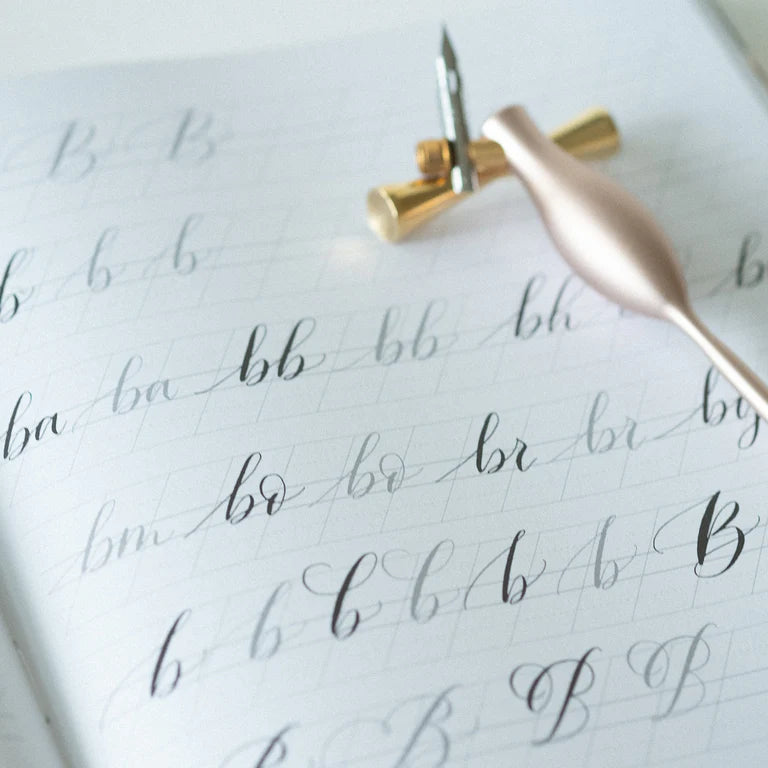 B B
b b b
ba ba bb bb bh b
bm bo bo br br by
b b b b b b B
B B B